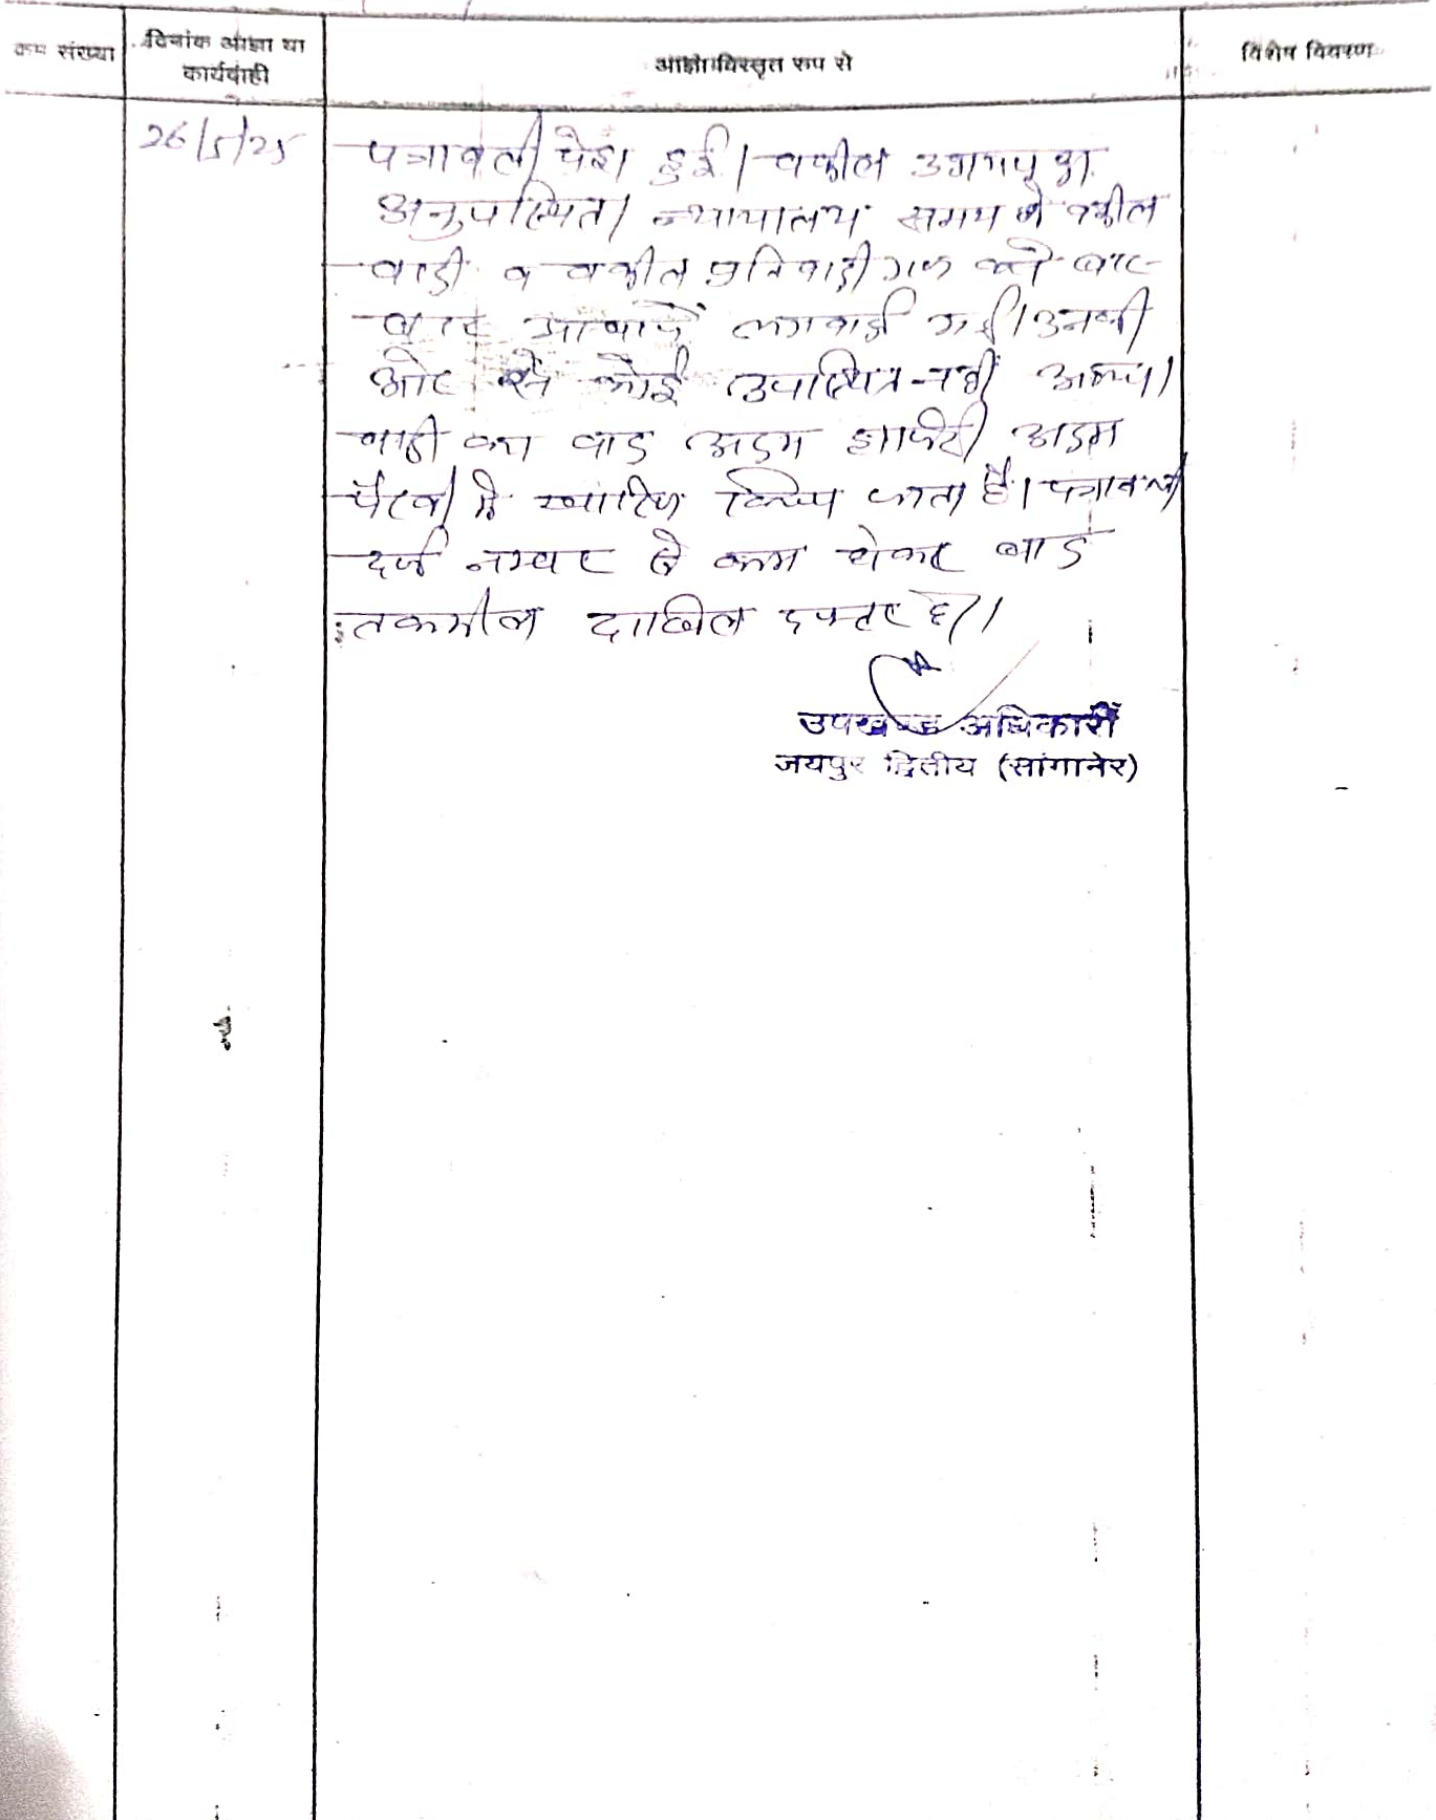 क्रम संख्या
दिनांक आज्ञा या
कार्यवाही
आज्ञा विस्तृत रूप से
विशेष विवरण
26/5/25
पत्रावली पेश हुई। वकील उभयपक्ष
अनुपस्थित। न्यायालय समय में वकील
वादी व वकील प्रतिवादीगण को बार-
बार आवाजें लगवाई गई। उनकी
ओर से कोई उपस्थित नहीं आया।
वादी का वाद अदम हाजरी अदम
पैरवी में खारिज किया जाता है। पत्रावली
दर्ज नम्बर से कम होकर बाद
तकमील दाखिल दफ्तर हो।
उपखण्ड अधिकारी
जयपुर द्वितीय (सांगानेर)